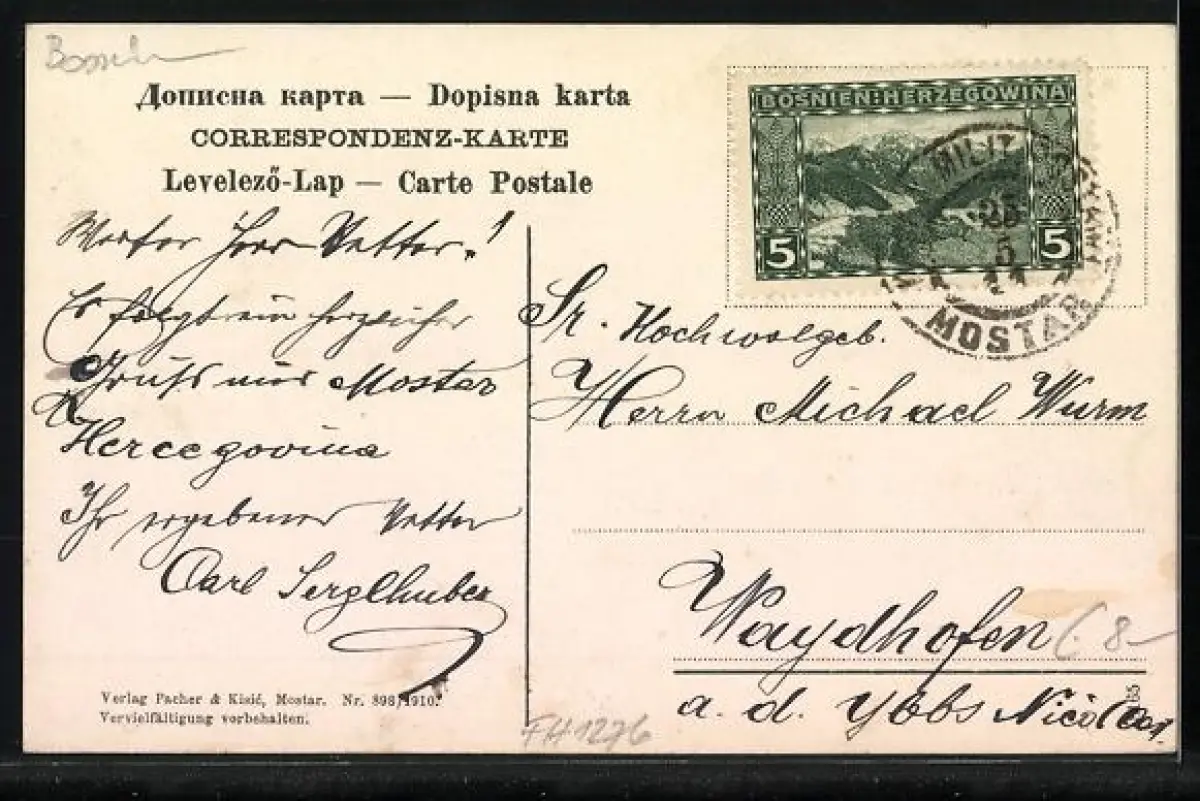 Дописна карта — Dopisna karta
CORRESPONDENZ-KARTE
Levelező-Lap — Carte Postale
BOSNIEN-HERZEGOWINA
5 5
MILIT
25
5
11
MOSTAR
Werter Herr Vetter!
Es folgt ein herzlicher
Gruß aus Mostar
Hercegovina
Ihr ergebener Vetter
Carl Serglhuber
Sr. Hochwolgeb.
Herrn Michael Wurm
Waydhofen
a. d. Ybbs
8-
Verlag Pacher & Kisić, Mostar. Nr. 898/1910.
Vervielfältigung vorbehalten.
FH1276